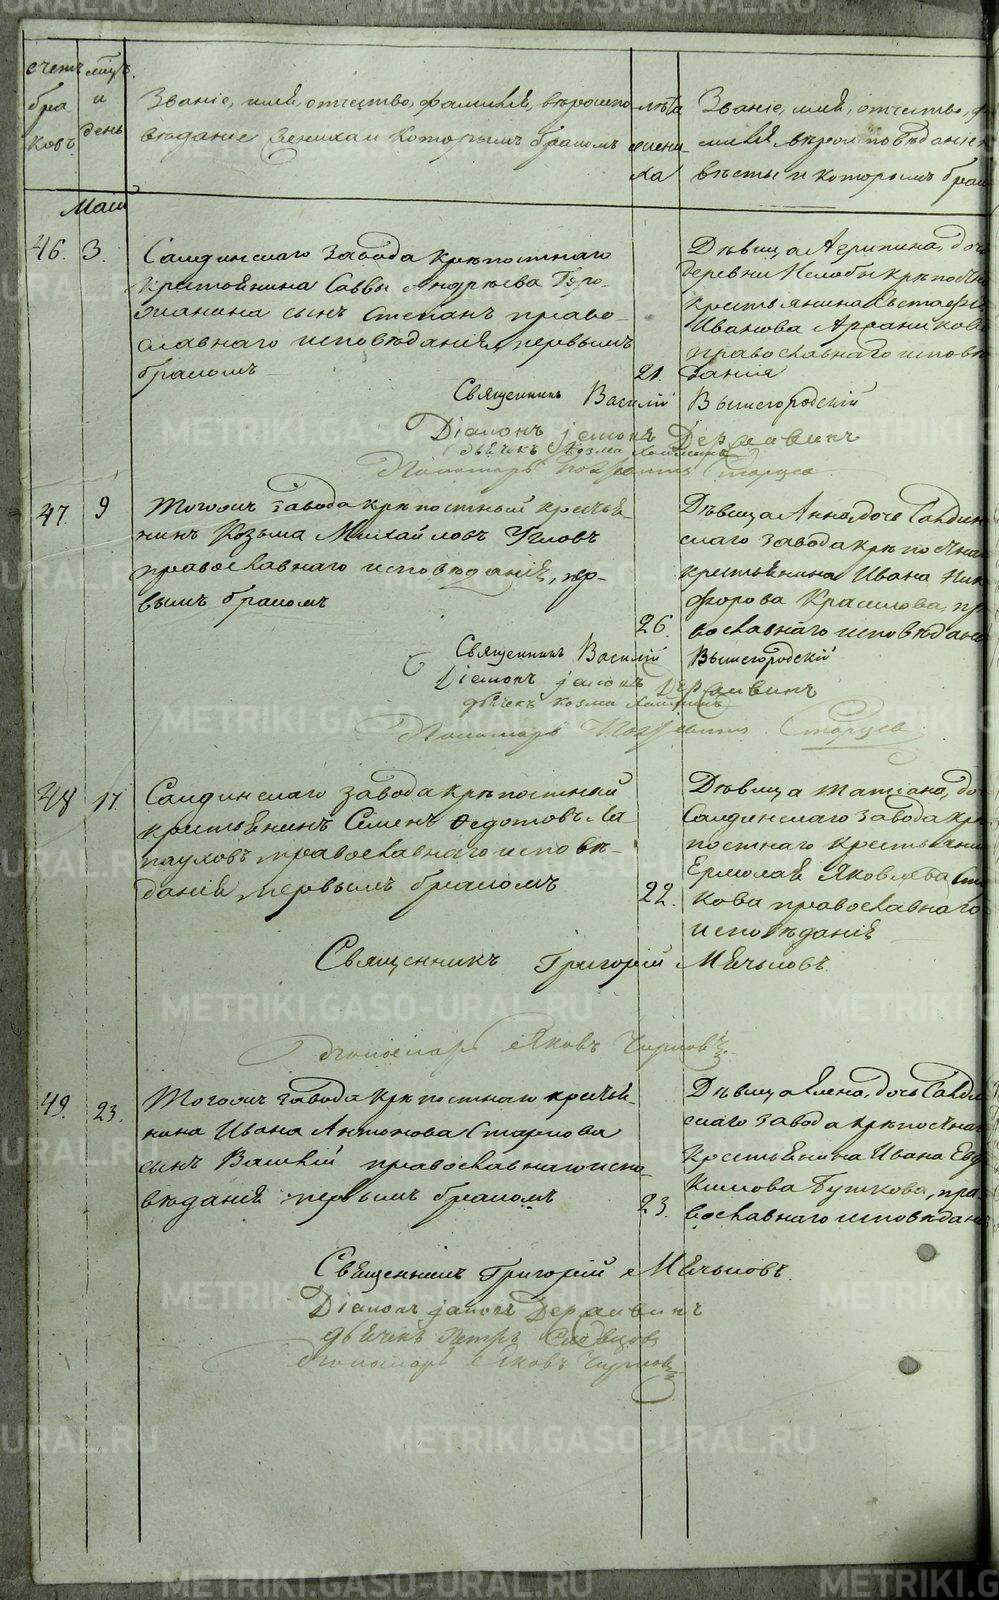 счетъ бра ковъ
мцъ и день
Званіе, имя, отчество, фамилія, вѣроиспо
вѣданіе жениха и которымъ бракомъ
лѣта жени ха
Званіе, имя, отчество, фа
милія вѣроисповѣданіе не
вѣсты и которымъ брак
Маій
46. 3.
Салдинскаго завода крѣпостнаго
крестьянина Саввы Андреева Горо-
жанина сынъ Степанъ право-
славнаго исповѣданія, первымъ
бракомъ
21.
Дѣвица Агрипина, доч
деревни Нелобы крѣпостн
крестьянина Евстафія
Иванова
православнаго исповѣ
данія
Священникъ Василій Вышегородскій
Діаконъ Іаковъ Державинъ
дьячекъ Козма
Пономарь Старцев
47. 9
Тогожъ завода крѣпостный крестья-
нинъ Козьма Михайловъ Угловъ
православнаго исповѣданія, пер-
вымъ бракомъ
26.
Дѣвица Анна, дочь Салдин
скаго завода крѣпостна
крестьянина Ивана Ники
форова Краснова, пра
вославнаго исповѣдані
Священникъ Василій Вышегородскій
Діаконъ Іаковъ Державинъ
дьячекъ Козма
Пономарь Старцев
48 17.
Салдинскаго завода крѣпостный
крестьянинъ Семенъ Федотовъ Ла-
пауховъ, православнаго исповѣ-
данія, первымъ бракомъ
22.
Дѣвица Татіана, до
Салдинскаго завода крѣ
постнаго крестьяни
Ермолая Яковлева
кова православнаго
исповѣданія
Священникъ Григорій Мячьковъ.
Пономарь Яковъ Чирковъ.
49. 23.
Тогожъ завода крѣпостнаго крестья-
нина Ивана Антонова Старкова
сынъ Василій православнаго испо
вѣданія первымъ бракомъ
23.
Дѣвица Елена, дочь Салди
скаго завода крѣпостнаго
крестьянина Ивана Евд
кимова Буткова, пра
вославнаго исповѣдані
Священникъ Григорій Мячьковъ.
Діаконъ Іаковъ Державинъ
дьячекъ Петръ Словцовъ
Пономарь Яковъ Чирковъ
METRIKI.GASO-URAL.RU